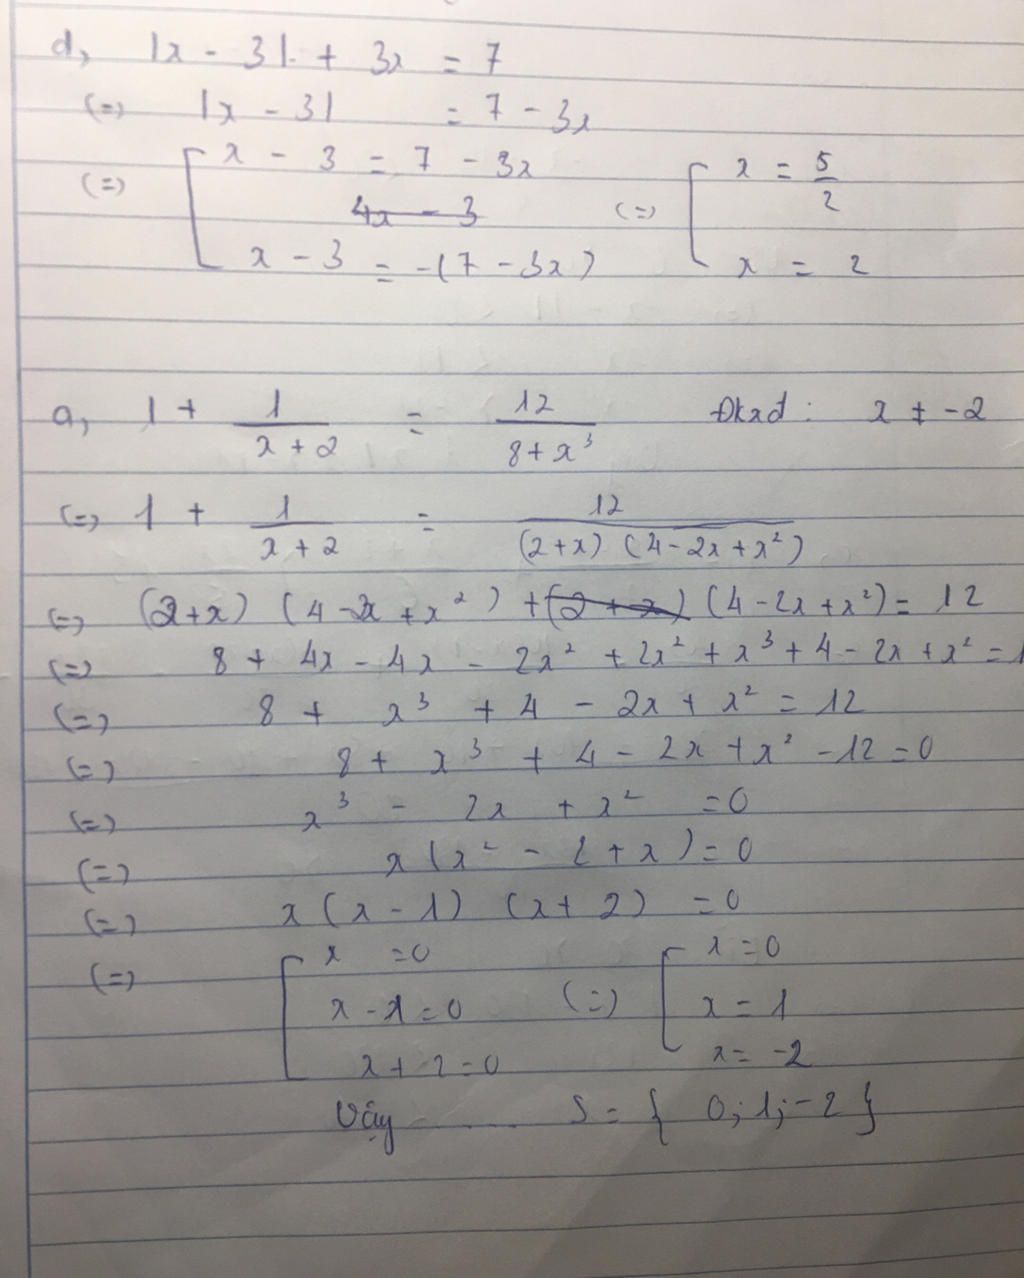 d, |x - 3| + 3x = 7
(=) |x - 3| = 7 - 3x
(=) [ x - 3 = 7 - 3x (=) [ x = 5/2
4x - 3
x - 3 = -(7 - 3x) x = 2
a, 1 + 1/(x + 2) = 12/(8 + x³) Đkxđ : x ≠ -2
(=) 1 + 1/(x + 2) = 12/((2+x) (4 - 2x + x²))
(=) (2+x) (4 - 2x + x²) + (2 + x) (4 - 2x + x²) = 12
(=) 8 + 4x - 4x - 2x² + 2x² + x³ + 4 - 2x + x² = 1
(=) 8 + x³ + 4 - 2x + x² = 12
(=) 8 + x³ + 4 - 2x + x² - 12 = 0
(=) x³ - 2x + x² = 0
(=) x (x² - 2 + x) = 0
(=) x (x - 1) (x + 2) = 0
(=) [ x = 0 (=) [ x = 0
x - 1 = 0 x = 1
x + 2 = 0 x = -2
Vậy ....... S = { 0; 1; -2 }